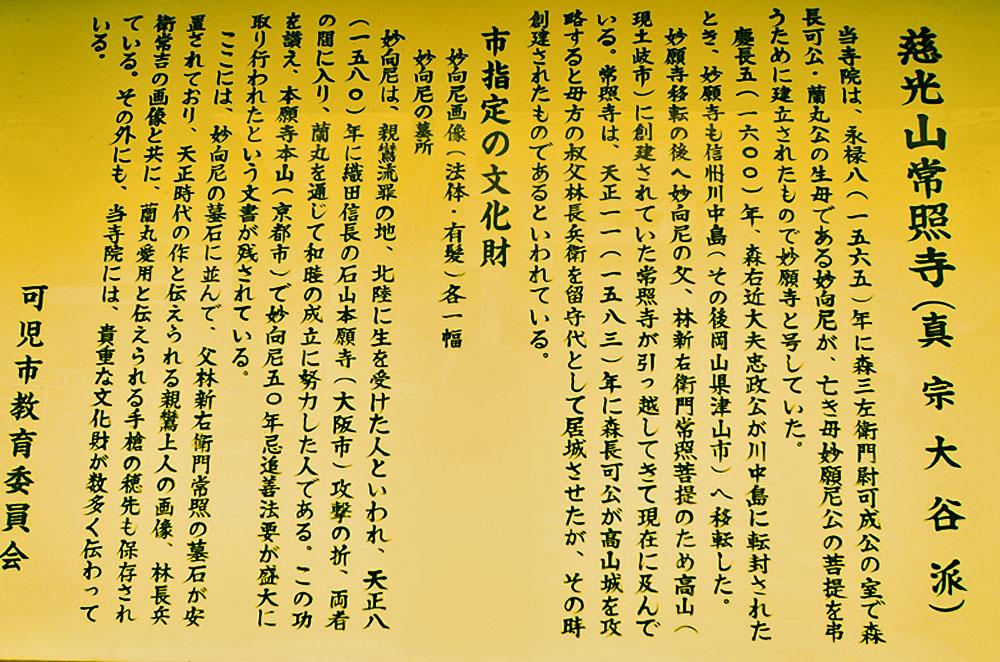 慈光山常照寺（真宗大谷派）
当寺院は、永禄八（一五六五）年に森三左衛門尉可成公の室で森
長可公・蘭丸公の生母である妙向尼が、亡き母妙願尼公の菩提を弔
うために建立されたもので妙願寺と号していた。
慶長五（一六〇〇）年、森右近大夫忠政公が川中島に転封された
とき、妙願寺も信州川中島（その後岡山県津山市）へ移転した。
妙願寺移転の後へ妙向尼の父、林新右衛門常照菩提のため高山（
現土岐市）に創建されていた常照寺が引っ越してきて現在に及んで
いる。常照寺は、天正一一（一五八三）年に森長可公が高山城を攻
略すると母方の叔父林長兵衛を留守代として居城させたが、その時
創建されたものであるといわれている。
市指定の文化財
妙向尼画像（法体・有髪）各一幅
妙向尼の墓所
妙向尼は、親鸞流罪の地、北陸に生を受けた人といわれ、天正八
（一五八〇）年に織田信長の石山本願寺（大阪市）攻撃の折、両者
の間に入り、蘭丸を通じて和睦の成立に努力した人である。この功
を讃え、本願寺本山（京都市）で妙向尼五〇年忌追善法要が盛大に
取り行われたという文書が残されている。
ここには、妙向尼の墓石に並んで、父林新右衛門常照の墓石が安
置されており、天正時代の作と伝えられる親鸞上人の画像、林長兵
衛常吉の画像と共に、蘭丸愛用と伝えられる手槍の穂先も保存され
ている。その外にも、当寺院には、貴重な文化財が数多く伝わって
いる。
可児市教育委員会